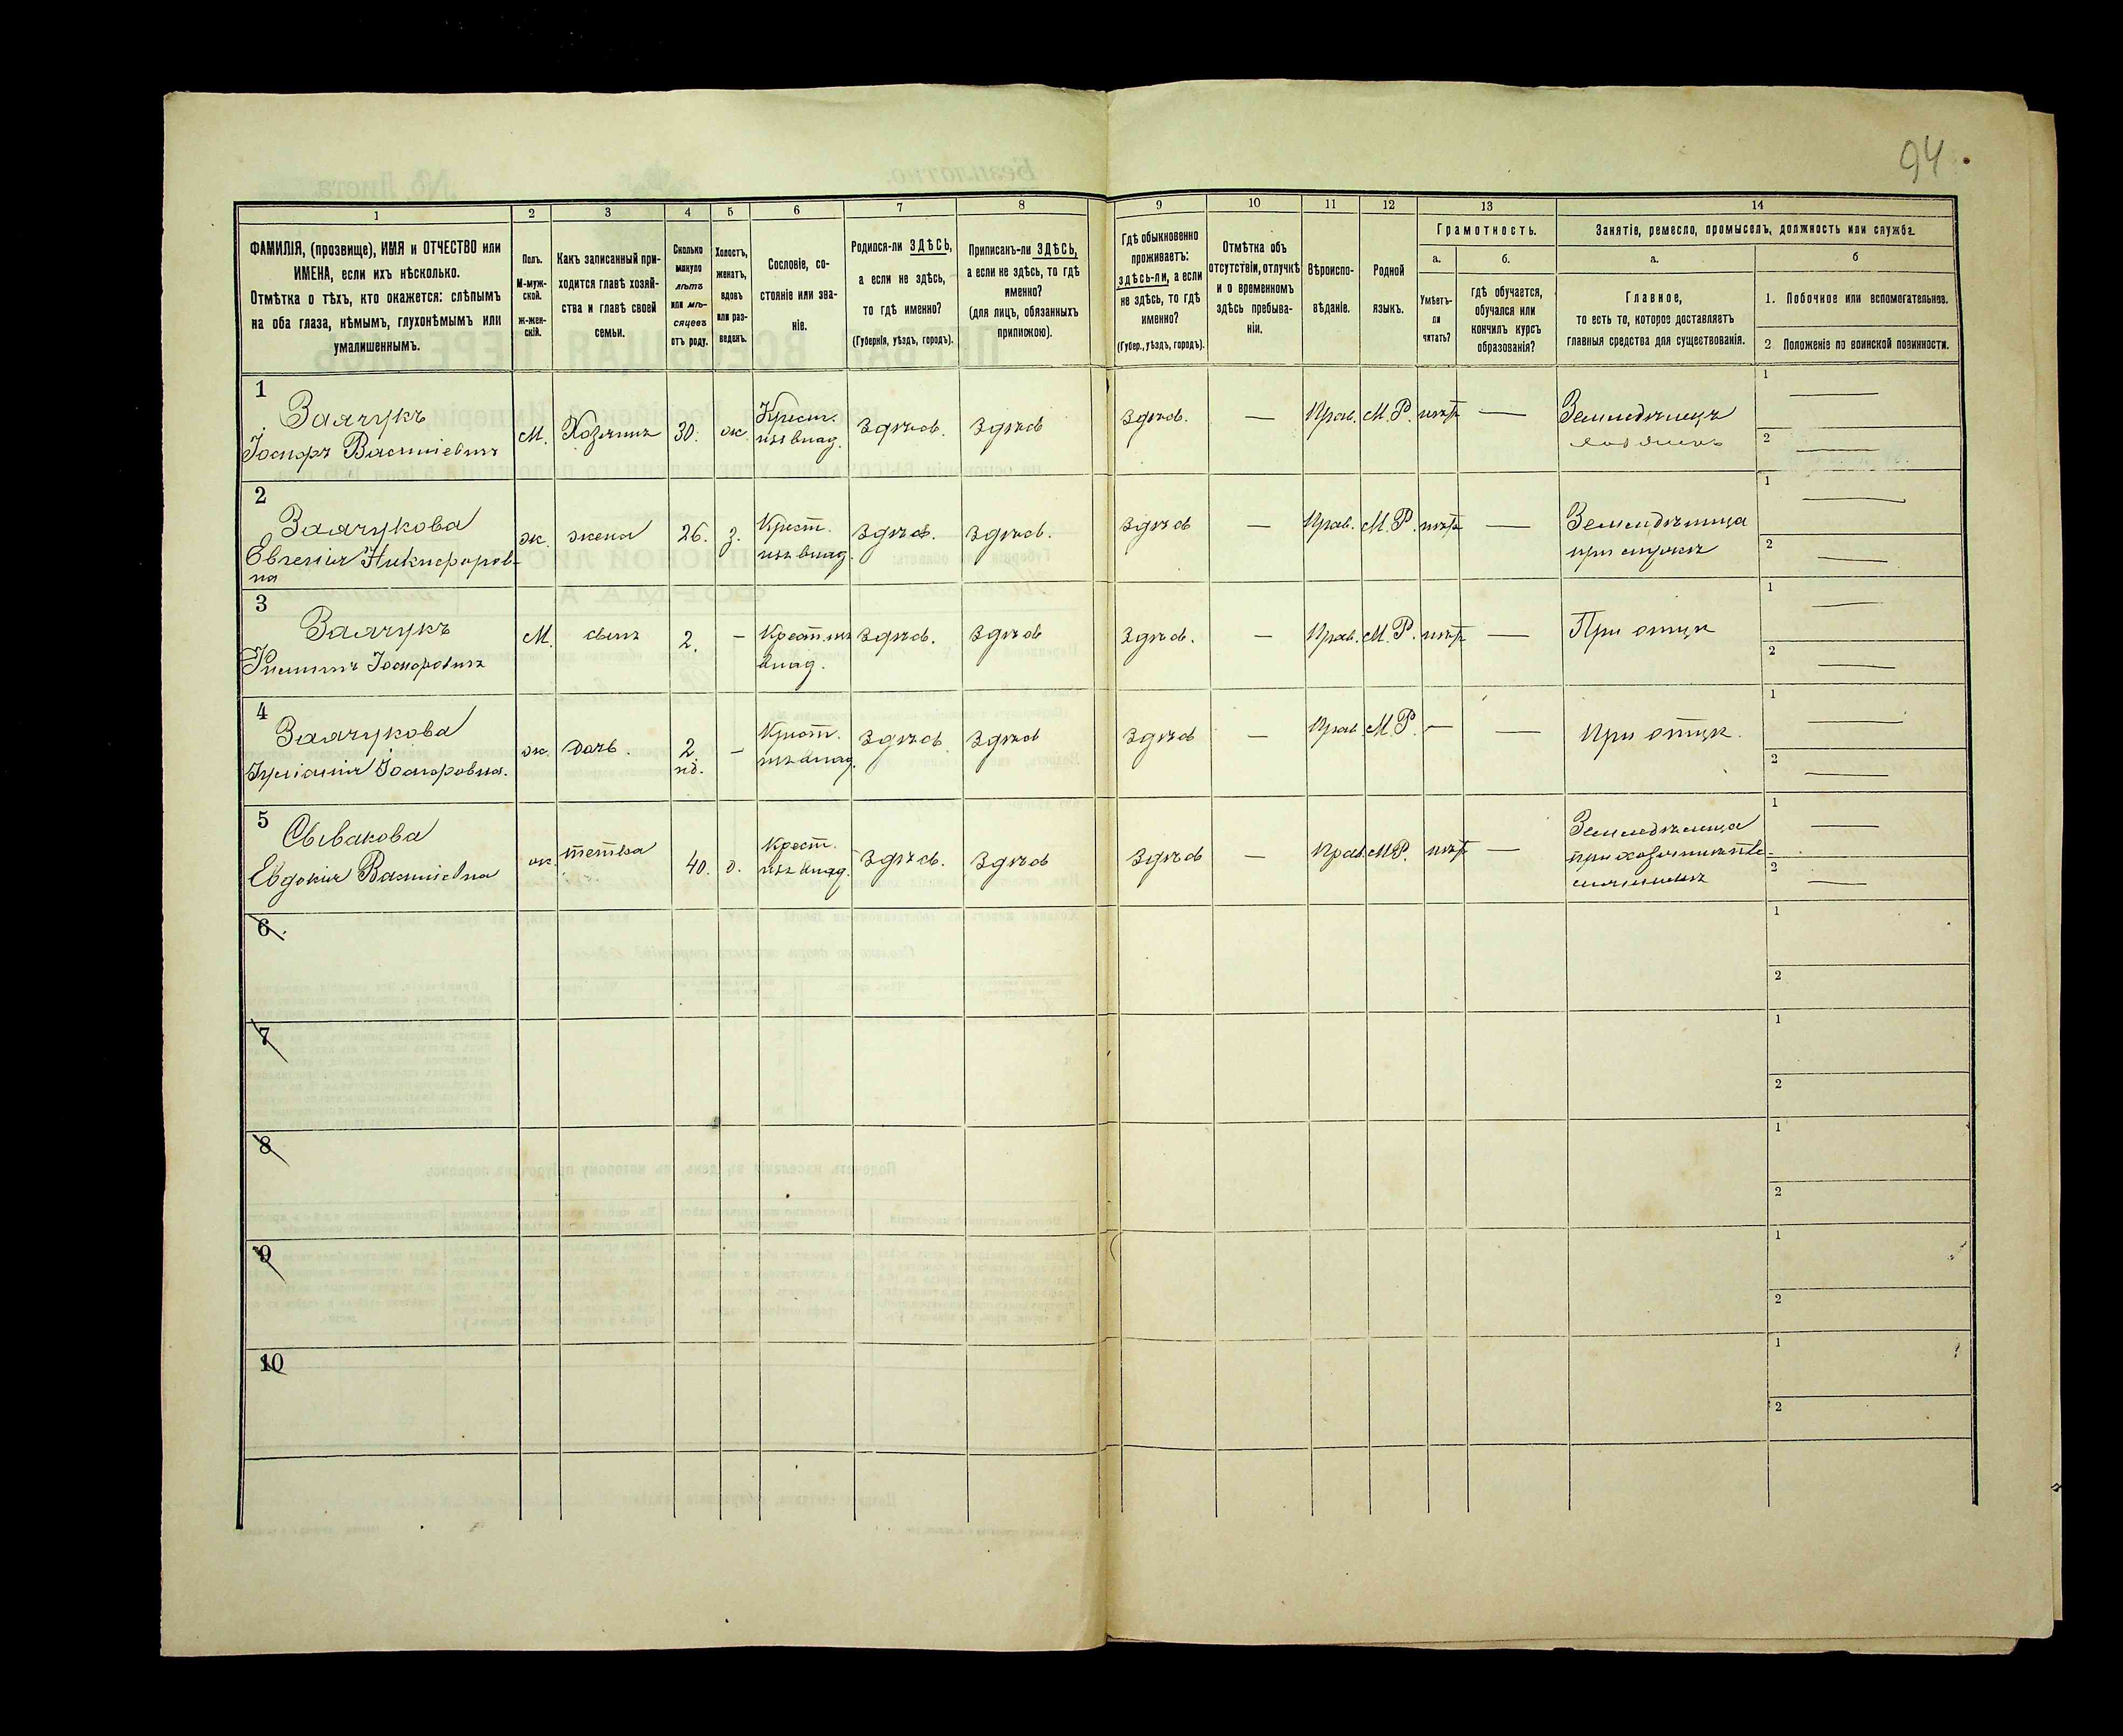 94.
1 2 3 4 5 6 7 8 9 10 11 12 13 14
ФАМИЛІЯ, (прозвище), ИМЯ и ОТЧЕСТВО или
ИМЕНА, если ихъ нѣсколько.
Отмѣтка о тѣхъ, кто окажется: слѣпымъ
на оба глаза, нѣмымъ, глухонѣмымъ или
умалишеннымъ.
Полъ.
М-муж-
ской.
ж-жен-
скій.
Какъ записанный при-
ходится главѣ хозяй-
ства и главѣ своей
семьи.
Сколько
минуло
лѣтъ
или мѣ-
сяцевъ
отъ роду.
Холостъ,
женатъ,
вдовъ
или раз-
веденъ.
Сословіе, со-
стояніе или зва-
ніе.
Родился-ли ЗДѢСЬ,
а если не здѣсь,
то гдѣ именно?
(Губернія, уѣздъ, городъ).
Приписанъ-ли ЗДѢСЬ,
а если не здѣсь, то гдѣ
именно?
(для лицъ, обязанныхъ
припискою).
Гдѣ обыкновенно
проживаетъ:
здѣсь-ли, а если
не здѣсь, то гдѣ
именно?
(Губер., уѣздъ, городъ).
Отмѣтка объ
отсутствіи, отлучкѣ
и о временномъ
здѣсь пребыва-
ніи.
Вѣроиспо-
вѣданіе.
Родной
языкъ.
Грамотность.
а.
Умѣетъ-
ли
читать?
б.
гдѣ обучается,
обучался или
кончилъ курсъ
образованія?
Занятіе, ремесло, промыселъ, должность или служба.
а.
Главное,
то есть то, которое доставляетъ
главныя средства для существованія.
б
1. Побочное или вспомогательное.
2 Положеніе по воинской повинности.
1
Заячукъ
Іосифъ Василіевичъ
М. Хозяинъ 30. ж. Крест.
изъ влад. Здѣсь. Здѣсь Здѣсь. — Прав. М.Р. нѣтъ — Земледѣлецъ
хозяинъ
1 —
2 —
2
Заячукова
Евгенія Никифоров-
на
ж. жена 26. з. Крест.
изъ влад. Здѣсь. Здѣсь. Здѣсь — Прав. М.Р. нѣтъ — Земледѣлица
при мужѣ
1 —
2 —
3
Заячукъ
Филиппъ Іосифовичъ
М. сынъ 2. — Крест. изъ
влад. Здѣсь. Здѣсь Здѣсь. — Прав. М.Р. нѣтъ — При отцѣ
1 —
2 —
4
Заячукова
Іосифовна.
ж. дочь. 2
нд. — Крест.
изъ влад. Здѣсь Здѣсь Здѣсь — Прав. М.Р. — — При отцѣ.
1 —
2 —
5
Сывакова
Евдокія Василіевна
ж. тетка 40. д. Крест.
изъ влад. Здѣсь. Здѣсь Здѣсь — Прав. М.Р. нѣтъ — Земледѣлица
при хозяинѣ
1 —
2 —
6
1
2
7
1
2
8
1
2
9
1
2
10
1
2